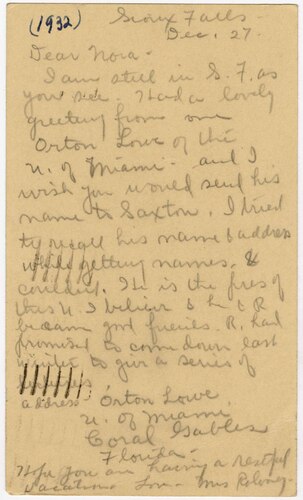 (1932)
Sioux Falls -
Dec. 27.
Dear Nora -
I am still in S. F. as
you see. Had a lovely
greeting from one
Orton Lowe of the
U. of Miami - and I
wish you would send his
name to Saxton. I tried
to recall his name & address
while getting names, &
couldn't. He is the pres of
this U. I believe & he & R
became good friends. R. had
promised to come down last
winter to give a series of
lectures.
address - Orton Lowe,
U. of Miami
Coral Gables
Florida -
Hope you are having a restful
vacation. Love - Mrs Rolvaag -